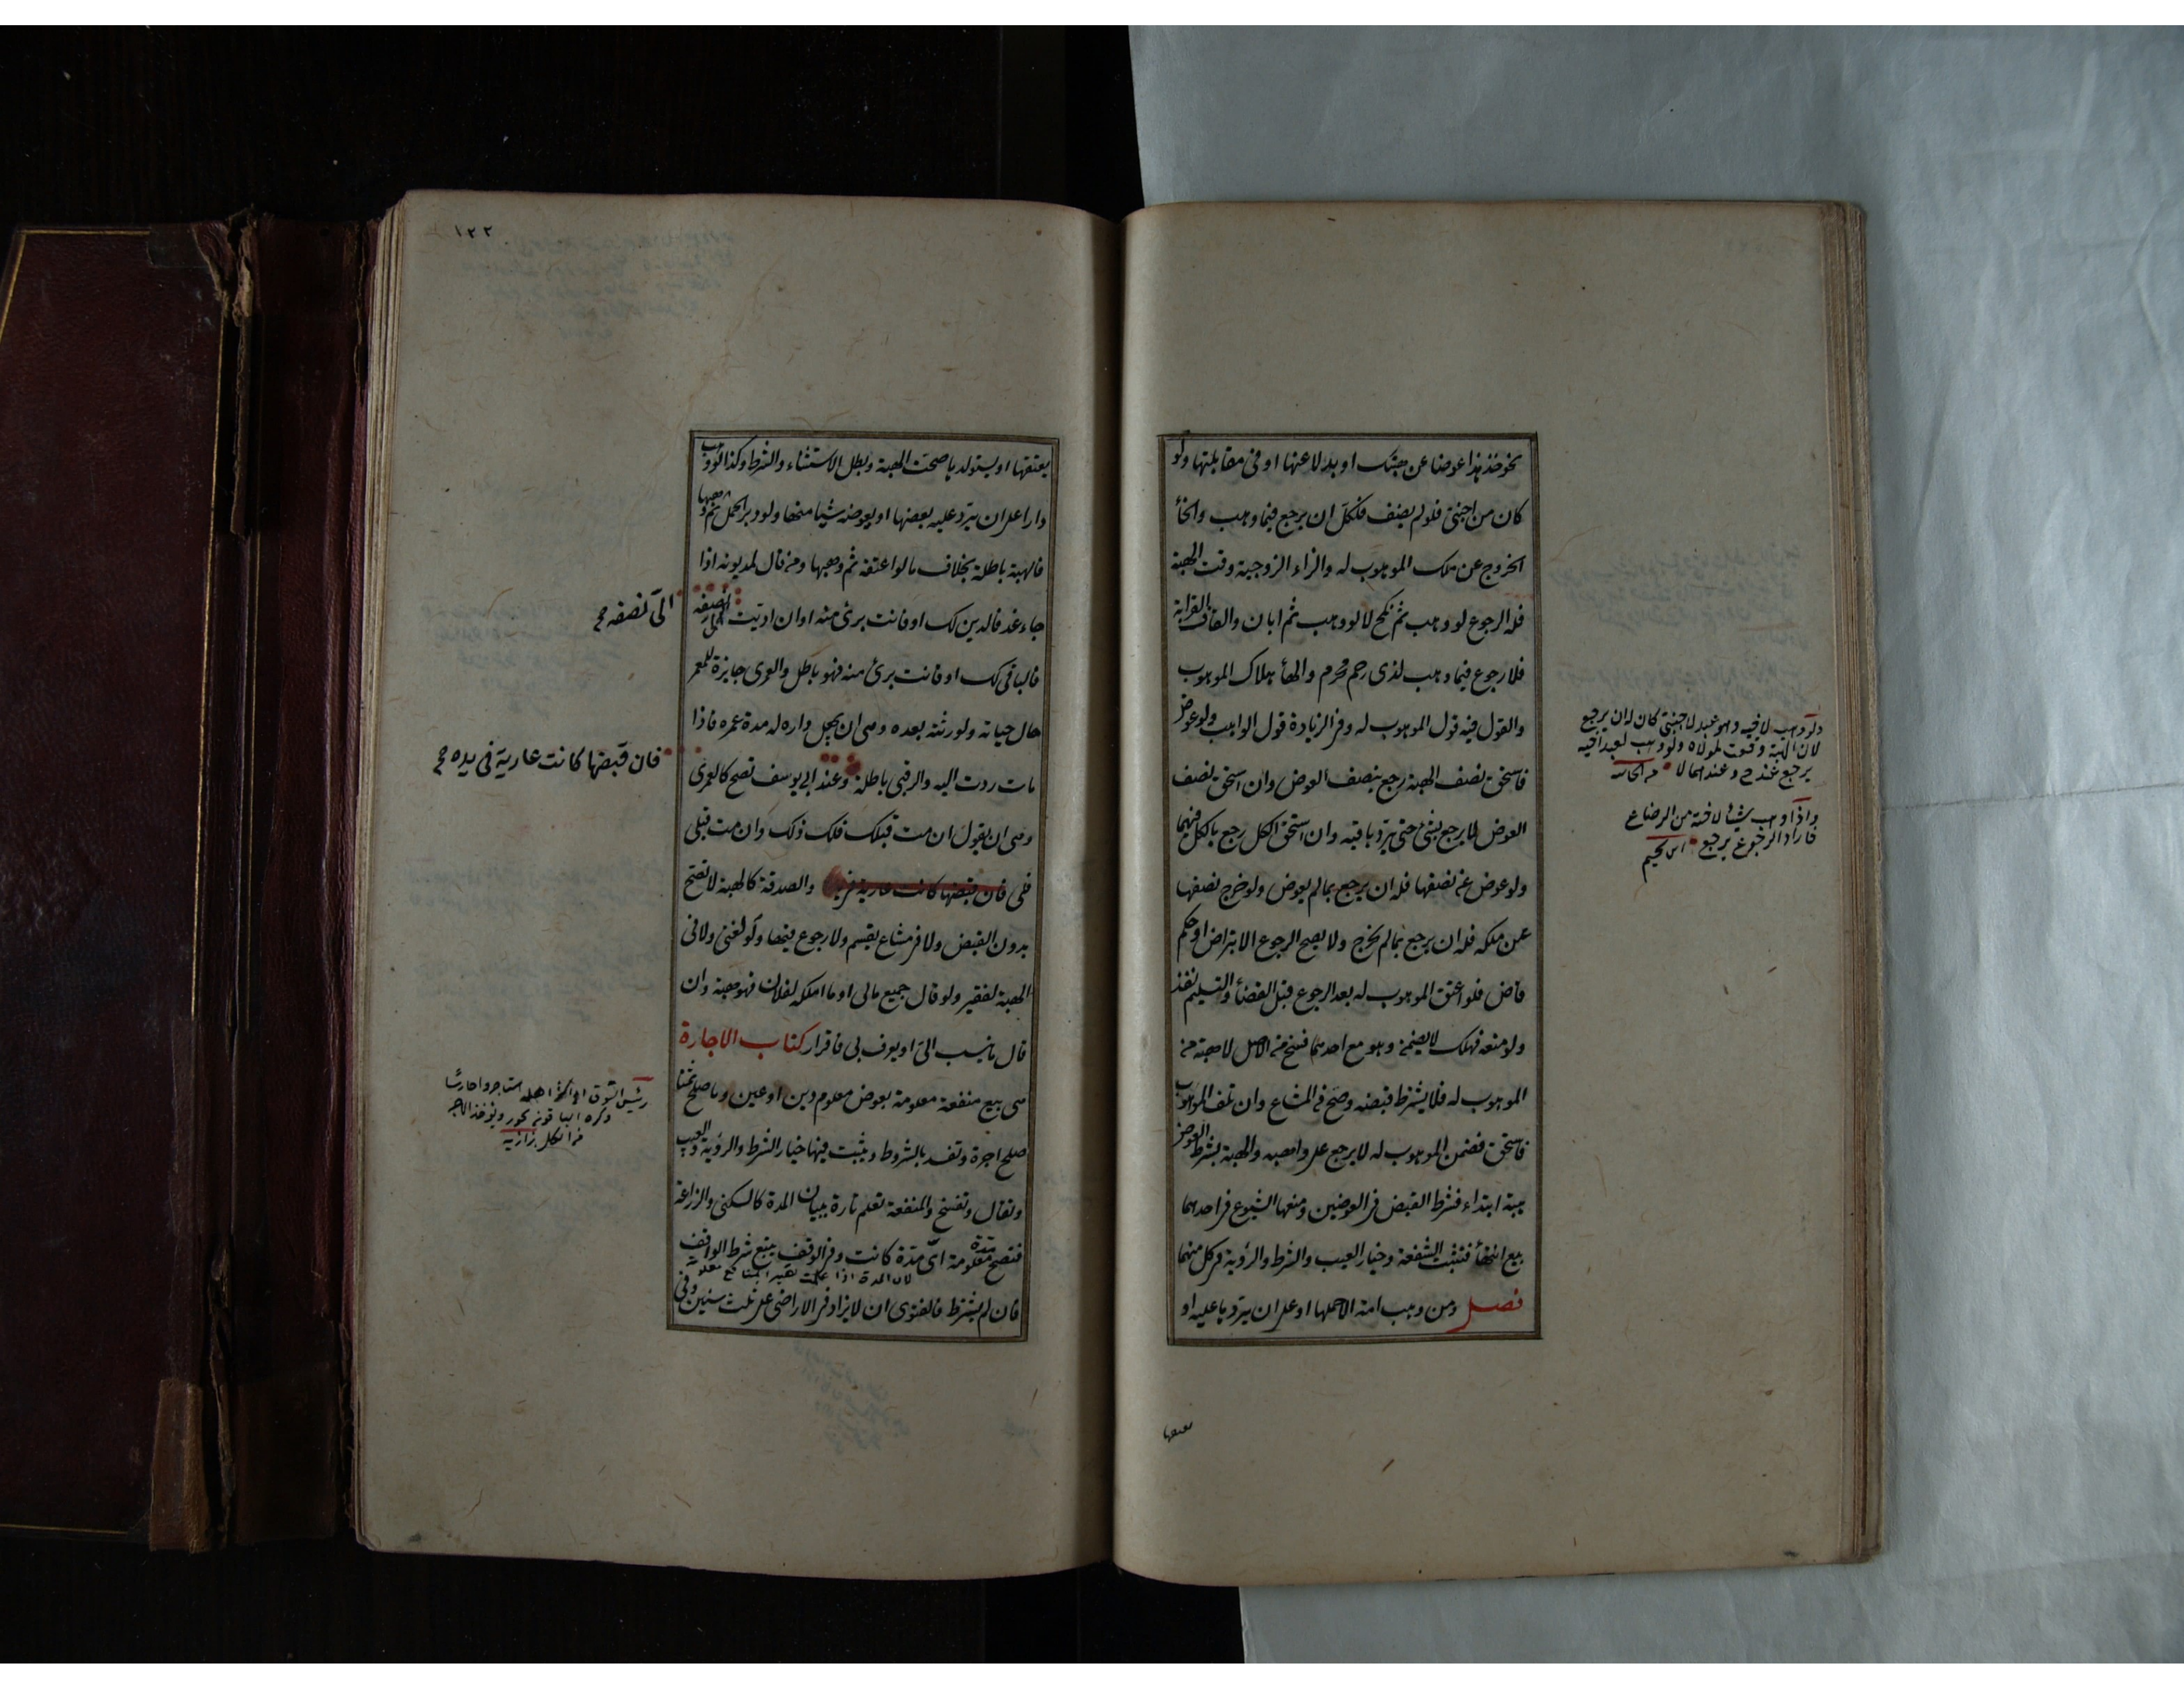 نحو خذ هذا عوضا عن هبتك او بدلا عنها او فى مقابلتها ولو
كان من اجنبى فلو لم يضف فلكل ان يرجع فيما وهب والخاء
الخروج عن ملك الموهوب له والزاء الزوجية وقت الهبة
فله الرجوع لو وهب ثم نكح لا لو وهب ثم ابان والقاف القرابة
فلا رجوع فيما وهب لذى رحم محرم والهاء هلاك الموهوب
والقول فيه قول الموهوب له وفى الزيادة قول الواهب ولو عوض
فاستحق نصف الهبة رجع بنصف العوض وان استحق نصف
العوض لا يرجع بشئ حتى يرد باقيه وان استحق الكل رجع بالكل فيهما
ولو عوض عن نصفها فله ان يرجع بما لم يعوض ولو خرج نصفها
عن ملكه فله ان يرجع بما لم يخرج ولا يصح الرجوع الا بتراض او حكم
قاض فلو اعتق الموهوب له بعد الرجوع قبل القضاء والتسليم نفذ
ولو منعه فهلك لا يضمن وهو مع احدهما فسخ من الاصل لا هبة من
الموهوب له فلا يشترط قبضه وصح فى المشاع وان تلف الموهوب
فاستحق فضمن الموهوب له لا يرجع على واهبه والهبة بشرط العوض
هبة ابتداء فشرط القبض فى العوضين ومنعها الشيوع فى احدهما
بيع انتهاء فتثبت الشفعة وخيار العيب والشرط والرؤية فى كل منهما
فصل ومن وهب امة الا حملها او على ان يردها عليه او
ولو وهب لاخيه وهو عبد لاجنبى كان له ان يرجع
لان الهبة وقعت لمولاه ولو وهب لعبد اخيه
يرجع عند ح وعندهما لا
واذا وهب شيئا لاخته من الرضاع
فاراد الرجوع يرجع ابن نجيم
١٢٢
يعتقها او يستولدها صحت الهبة وبطل الاستثناء والشرط وكذا لو وهب
دارا على ان يرد عليه بعضها او يعوضه شيئا منها ولو دبر الحمل ثم وهبها
فالهبة باطلة بخلاف ما لو اعتقه ثم وهبها ومن قال لمديونه اذا
جاء غد فالدين لك او فانت برئ منه او ان اديت الى نصفه
فالباقى لك او فانت برئ منه فهو باطل والعمرى جايزة للمعمر
حال حياته ولورثته بعده وهى ان يجعل داره له مدة عمره فاذا
مات ردت اليه والرقبى باطلة وعند ابى يوسف تصح كالعمرى
وهى ان يقول ان مت قبلك فلك ذلك وان مت قبلى
فلى فان قبضها كانت عارية فى يده والصدقة كالهبة لا تصح
بدون القبض ولا فى مشاع يقسم ولا رجوع فيها ولو لغنى ولا فى
الهبة لفقير ولو قال جميع مالى او ما املكه لفلان فهو هبة وان
قال ما ينسب الى او يعرف بى فاقرار كتاب الاجارة
هى بيع منفعة معلومة بعوض معلوم دين او عين وما صلح ثمنا
صلح اجرة وتفسد بالشروط ويثبت فيها خيار الشرط والرؤية والعيب
وتقال وتفسخ والمنفعة تعلم تارة ببيان المدة كالسكنى والزراعة
فتصح مدة معلومة اى مدة كانت وفى الوقف يتبع شرط الواقف
لان المدة اذا علمت يصير المنافع معلومة
فان لم يشترط فالفتوى ان لا يزاد فى الاراضى على ثلث سنين وفى
الى نصفه صح
فان قبضها كانت عارية فى يده صح
رئيس السوق او اكثر اهله استاجروا حارسا
وكره الباقون يجوز ويؤخذ الاجر
من الكل بزازية
بعتقها